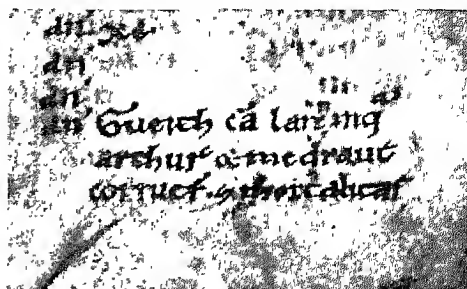 an
an
an
an Gueith cā lann inq
arthur & medraut
corruer & mortalitas